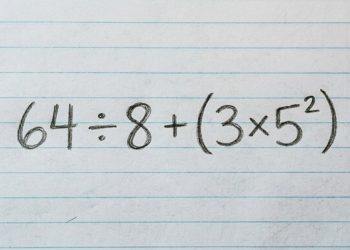 64÷8+(3×5²)